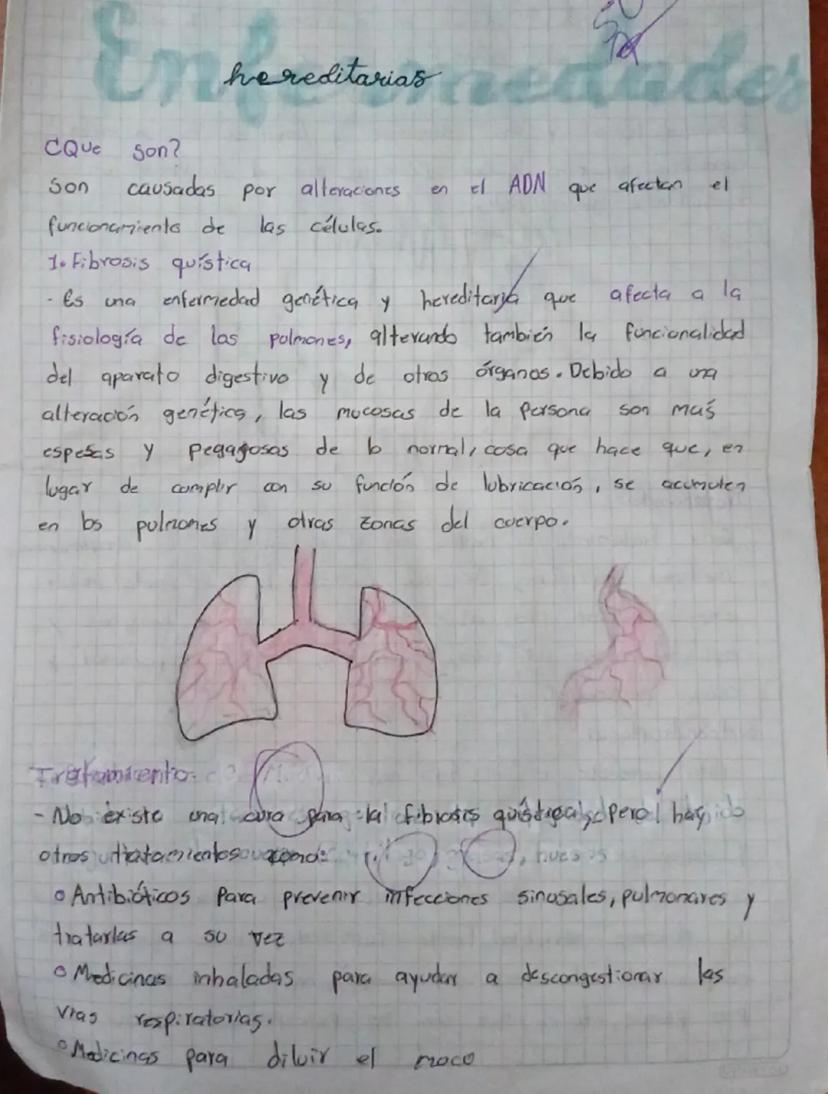 Enfermedades
hereditarias
¿Que son?
Son causadas por alteraciones en el ADN que afectan el
funcionamiento de las células.
1. Fibrosis quística
- Es una enfermedad genética y hereditaria que afecta a la
fisiología de los pulmones, alterando también la funcionalidad
del aparato digestivo y de otros órganos. Debido a una
alteración genética, las mucosas de la persona son más
espesas y pegagosas de lo normal, cosa que hace que, en
lugar de cumplir con su función de lubricación, se acumulen
en los pulmones y otras zonas del cuerpo.
Tratamiento:
- No existe una cura para la fibrosis quística, pero hay
otros tratamientos como:
Antibióticos para prevenir infecciones sinusales, pulmonares y
tratarlas a su vez
Medicinas inhaladas para ayudar a descongestionar las
vias respiratorias.
Medicinas para diluir el moco